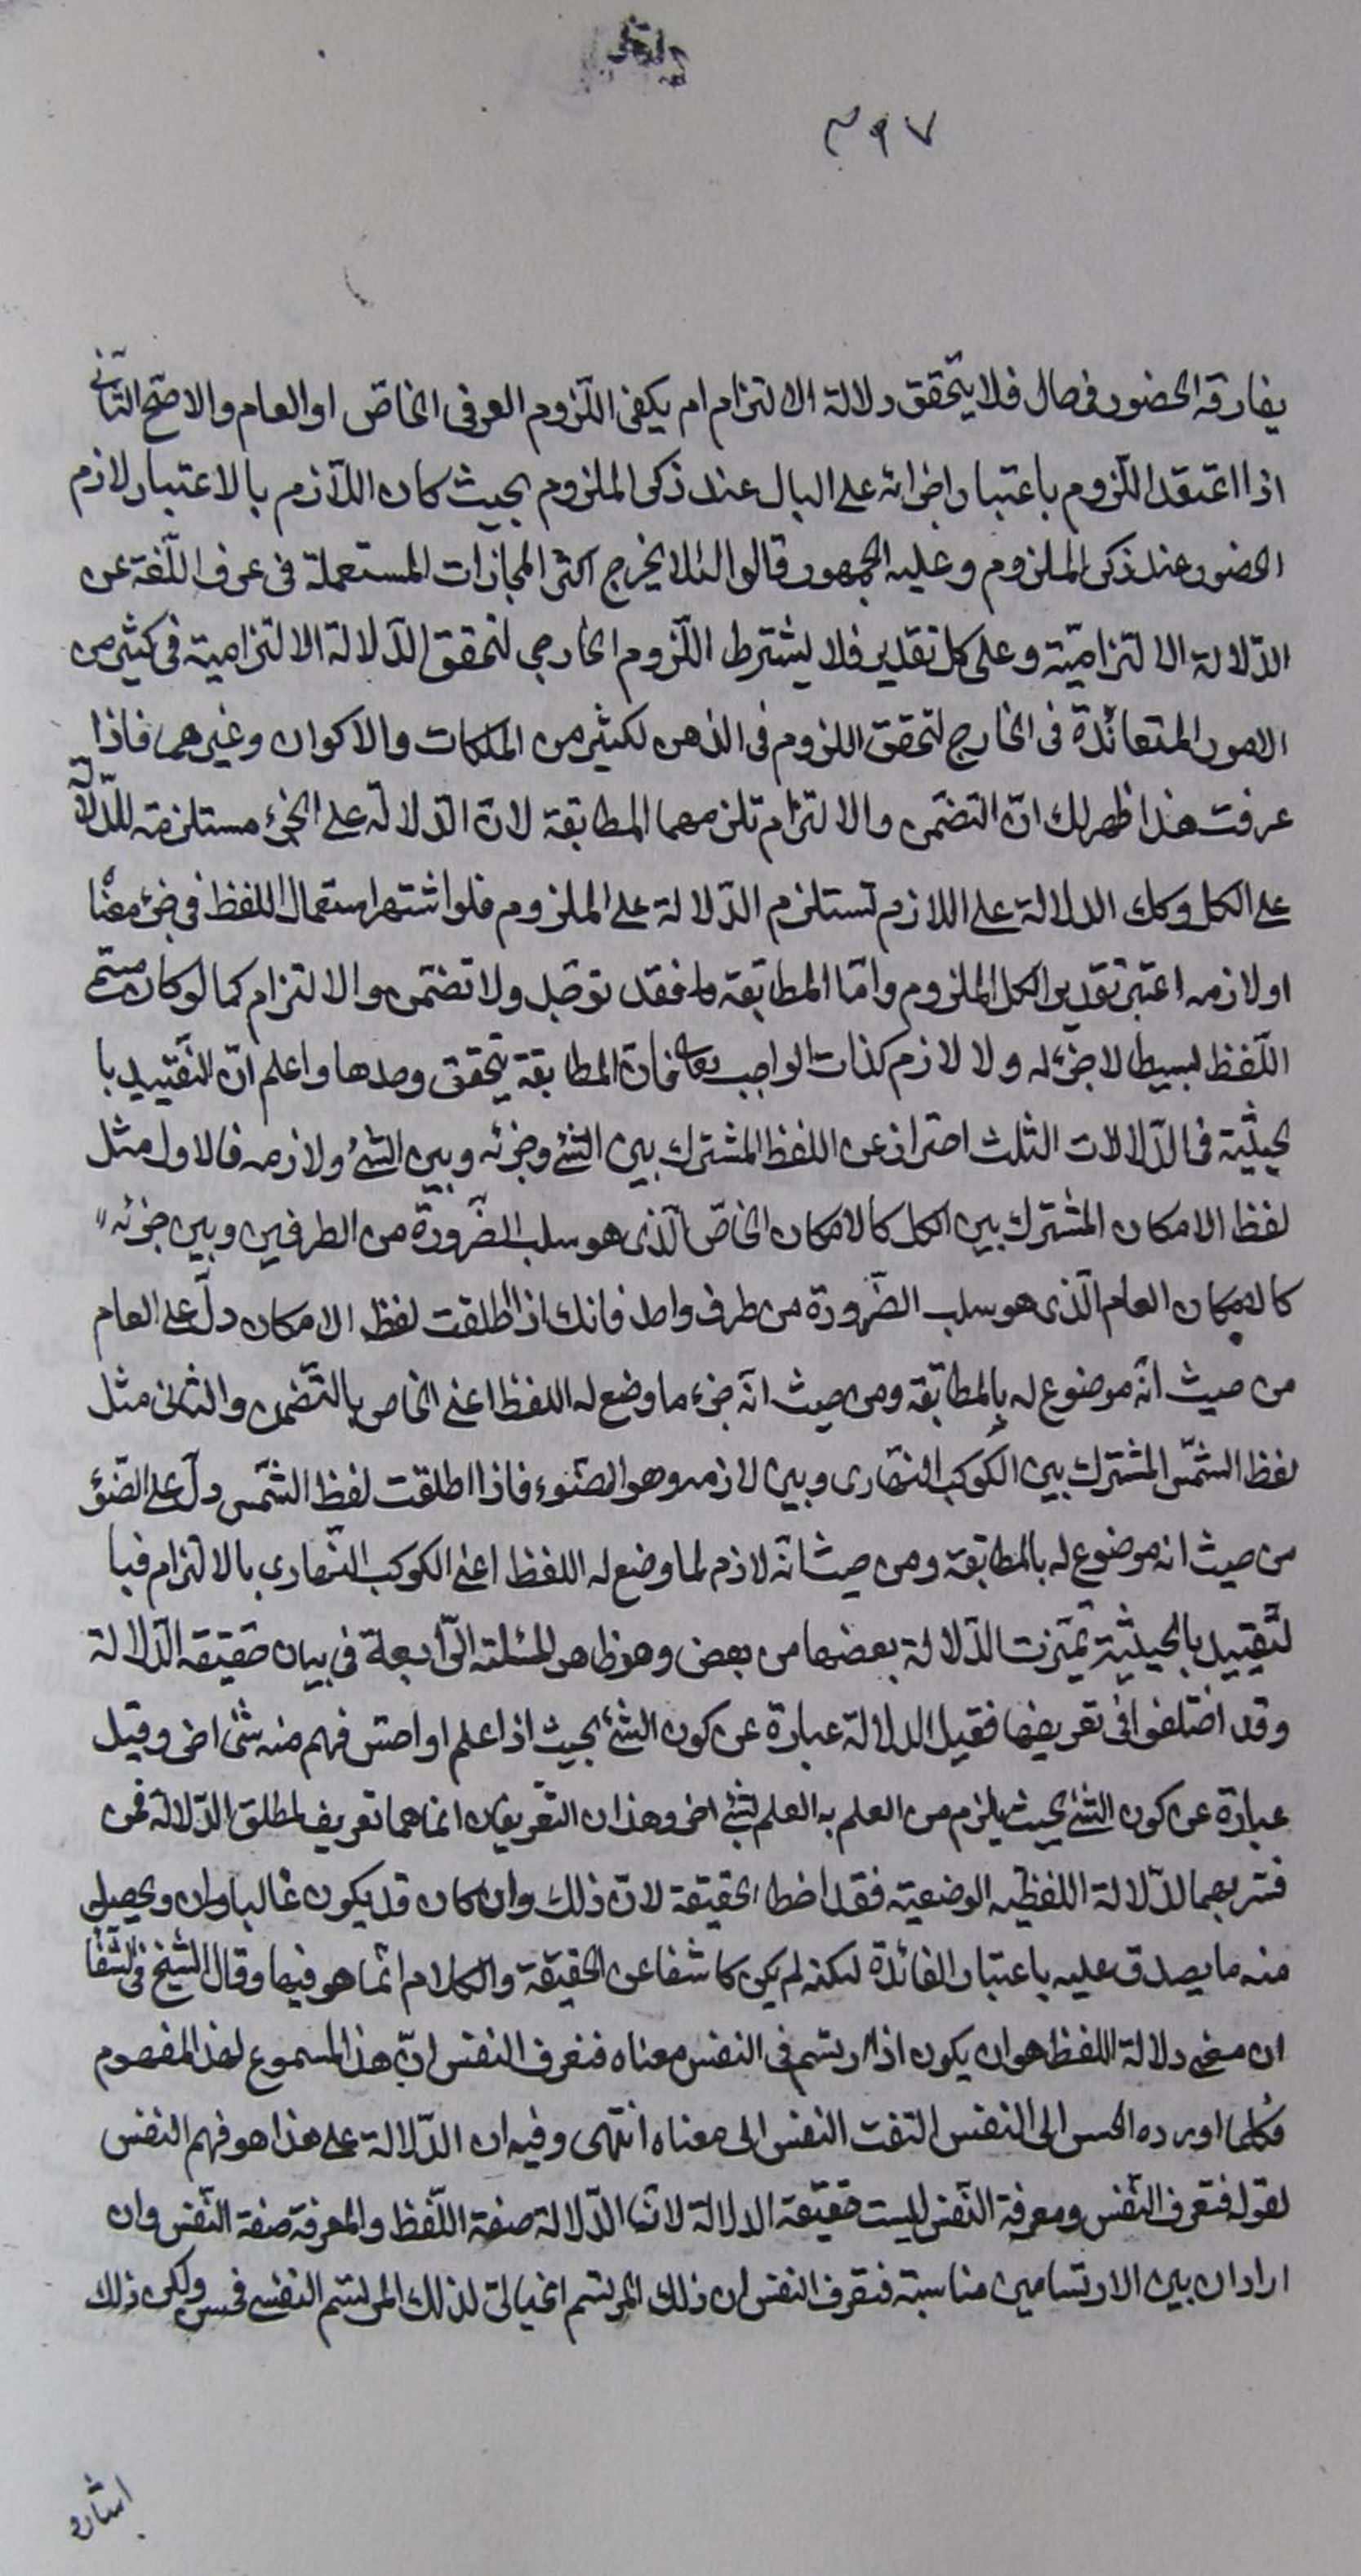 ٣٩٧
يفارقه الحضور في حال فلا يتحقق دلالة الالتزام ام يكفى اللّزوم العرفى الخاصّ او العام والاصحّ الثّانى
اذا اعتقد اللّزوم باعتبار اجرائه على البال عند ذكر الملزوم بحيث كان اللّازم بالاعتبار لازم
الحضور عند ذكر الملزوم وعليه الجمهور قالوا لئلا يخرج اكثر المجازات المستعملة فى عرف اللّغة عن
الدّلالة الالتزاميّة وعلى كل تقدير فلا يشترط اللّزوم الخارجي لتحقق الدّلالة الالتزامية فى كثير من
الامور المتعائدة فى الخارج لتحقق اللزوم فى الذهن لكثير من الملكات والاكوان وغيرهما فاذا
عرفت هذا ظهر لك انّ التضمّن والالتزام تلزمهما المطابقة لانّ الدّلالة على الجزء مستلزمة للدّلالة
على الكل وكك الدلالة على اللازم تستلزم الدّلالة على الملزوم فلو اشتهر استعمال اللفظ فى جزء معناه
او لازمه اعتبر تقدير الكل الملزوم وامّا المطابقة فقد توجد ولا تضمّن والالتزام كما لو كان مسمّى
اللّفظ بسيطا لا جزء له ولا لازم كذات الواجب تعالى فانّ المطابقة يتحقق وحدها واعلم انّ التّقييد با
لحيثيّة فى الدّلالات الثلث احتراز عن اللفظ المشترك بين الشئ وجزئه وبين الشئ ولازمه فالاول مثل
لفظ الامكان المشترك بين الكل كالامكان الخاصّ الّذى هو سلب الضّرورة من الطرفين وبين جزئه
كالامكان العام الّذى هو سلب الضّرورة من طرف واحد فانك اذا اطلقت لفظ الامكان دلّ على العام
من حيث انّه موضوع له بالمطابقة ومن حيث انّه جزء ما وضع له اللفظ اعنى الخاص بالتّضمن والثانى مثل
لفظ الشّمس المشترك بين الكوكب النّهارى وبين لازمه وهو الضّوء فاذا اطلقت لفظ الشّمس دلّ على الضّوء
من حيث انه موضوع له بالمطابقة ومن حيث انّه لازم لما وضع له اللفظ اعنى الكوكب النّهارى بالالتزام فبا
لتّقييد بالحيثيّة تميّزت الدّلالة بعضها من بعض وهو ظاهر المسئلة الرّابعة فى بيان حقيقة الدّلالة
وقد اختلفوا فى تعريفها فقيل الدلالة عبارة عن كون الشئ بحيث اذا علم او احسّ فهم منه شئ اخر وقيل
عبارة عن كون الشئ بحيث يلزم من العلم به العلم بشئ اخر وهذان التّعريفان انما هما تعريف لمطلق الدّلالة فمن
فسّر بهما الدّلالة اللفظيه الوضعية فقد اخطا الحقيقة لانّ ذلك وان كان قد يكون غالبا وان ويحصل
منه ما يصدق عليه باعتبار الفائدة لكنه لم يكن كاشفا عن الحقيقة والكلام انّما هو فيها وقال الشّيخ فى الشّفا
ان معنى دلالة اللفظ هو ان يكون اذا ارتسم فى النفس معناه فتعرف النفس انّ هذا المسموع لهذا المفهوم
فكلما اورده الحس الى النفس التفت النفس الى معناه انتهى وفيه ان الدّلالة على هذا هو فهم النفس
لقوله فتعرف النّفس ومعرفة النّفس ليست حقيقة الدلالة لانّ الدّلالة صفة اللّفظ والمعرفة صفة النّفس وان
اراد ان بين الارتسامين مناسبة فتعرف النفس ان ذلك المرتسم الخيالى لذلك المرتسم النفسى فحسن ولكن ذلك
اشارة